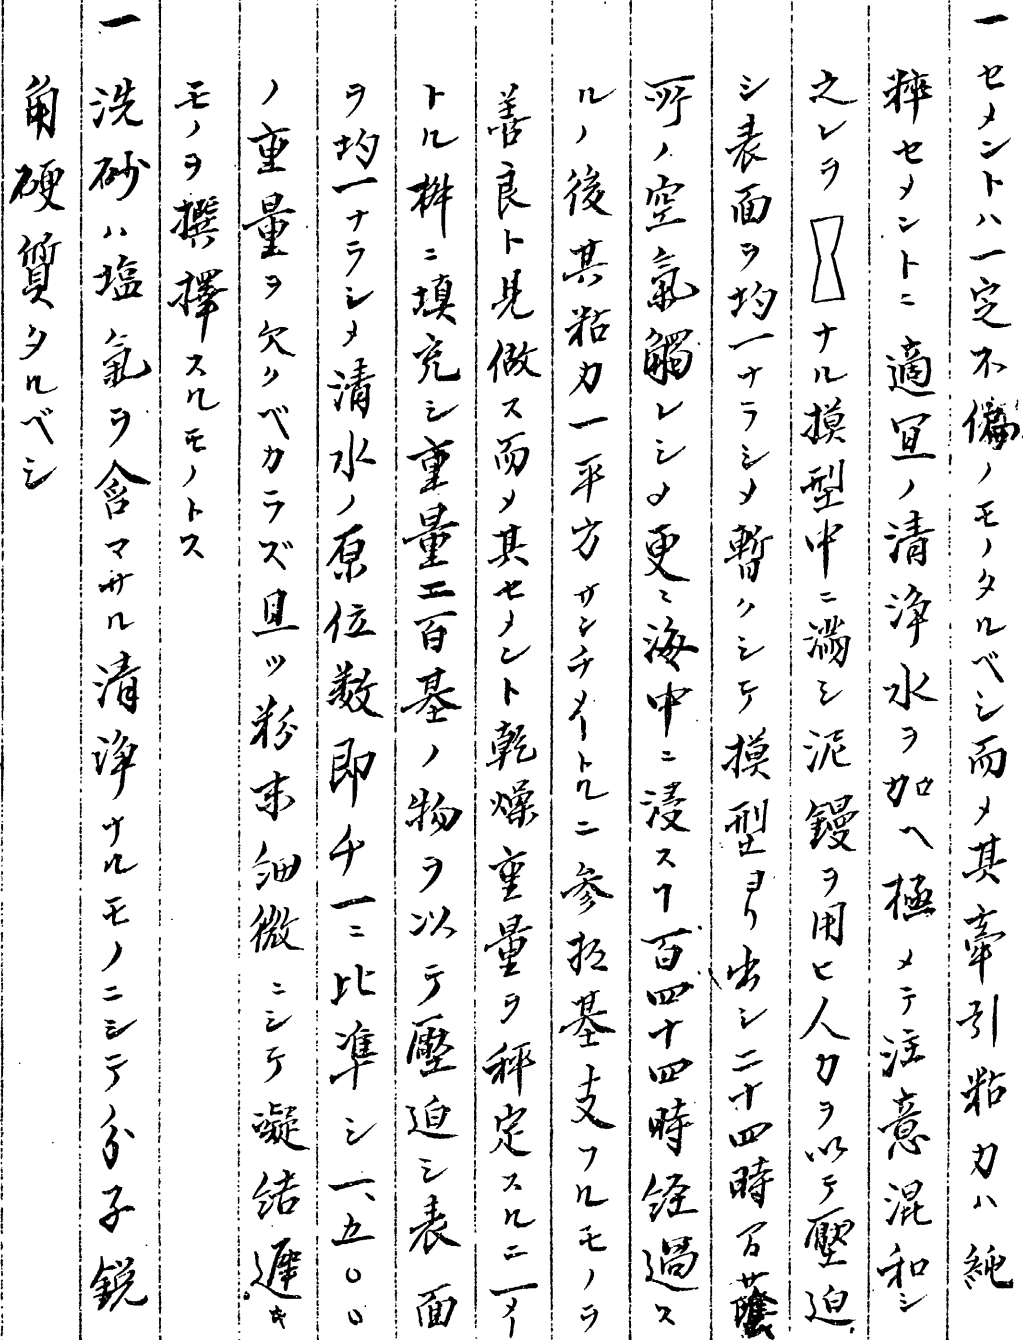 一セメントハ一定不偏ノモノタルベシ而メ其牽引粘力ハ純
粹セメントニ適宜ノ清浄水ヲ加ヘ極メテ注意混和シ
之レヲナル摸型中ニ満シ泥鏝ヲ用ヒ人力ヲ以テ壓迫
シ表面ヲ均一ナラシメ暫クシテ摸型ヨリ出シ二十四時間
所ノ空氣觸レシメ更ニ海中ニ浸スヿ百四十四時経過ス
ルノ後其粘力一平方サンチメートルニ参拾基支フルモノヲ
善良ト見做ス而メ其セメント乾燥重量ヲ秤定スルニ一メー
トル桝ニ填充シ重量二百基ノ物ヲ以テ壓迫シ表面
ヲ均一ナラシメ清水ノ原位数即チ一ニ比準シ一、五〇〇
ノ重量ヲ欠クベカラズ且ツ粉末細微ニシテ凝結遅キ
モノヲ撰擇スルモノトス
一洗砂ハ塩氣ヲ含マザル清浄ナルモノニシテ分子鋭
角硬質タルベシ